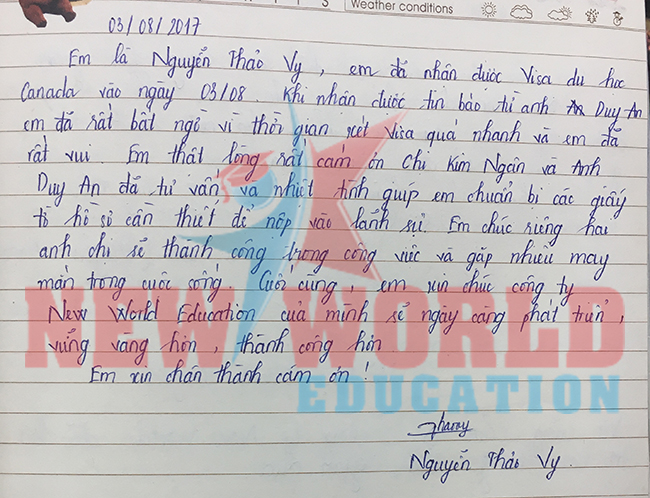 S Weather conditions
03/08/2017
Em là Nguyễn Thảo Vy, em đã nhận được Visa du học
Canada vào ngày 03/08. Khi nhận được tin báo từ anh Duy An
em đã rất bất ngờ vì thời gian xét Visa quá nhanh và em đã
rất vui. Em thật lòng rất cám ơn Chị Kim Ngân và Anh
Duy An đã tư vấn và nhiệt tình giúp em chuẩn bị các giấy
tờ hồ sơ cần thiết để nộp vào lãnh sự. Em chúc riêng hai
anh chị sẽ thành công trong công việc và gặp nhiều may
mắn trong cuộc sống. Cuối cùng, em xin chúc công ty
New World Education của mình sẽ ngày càng phát triển,
vững vàng hơn, thành công hơn
Em xin chân thành cám ơn!
NEW WORLD
EDUCATION
Nguyễn Thảo Vy.